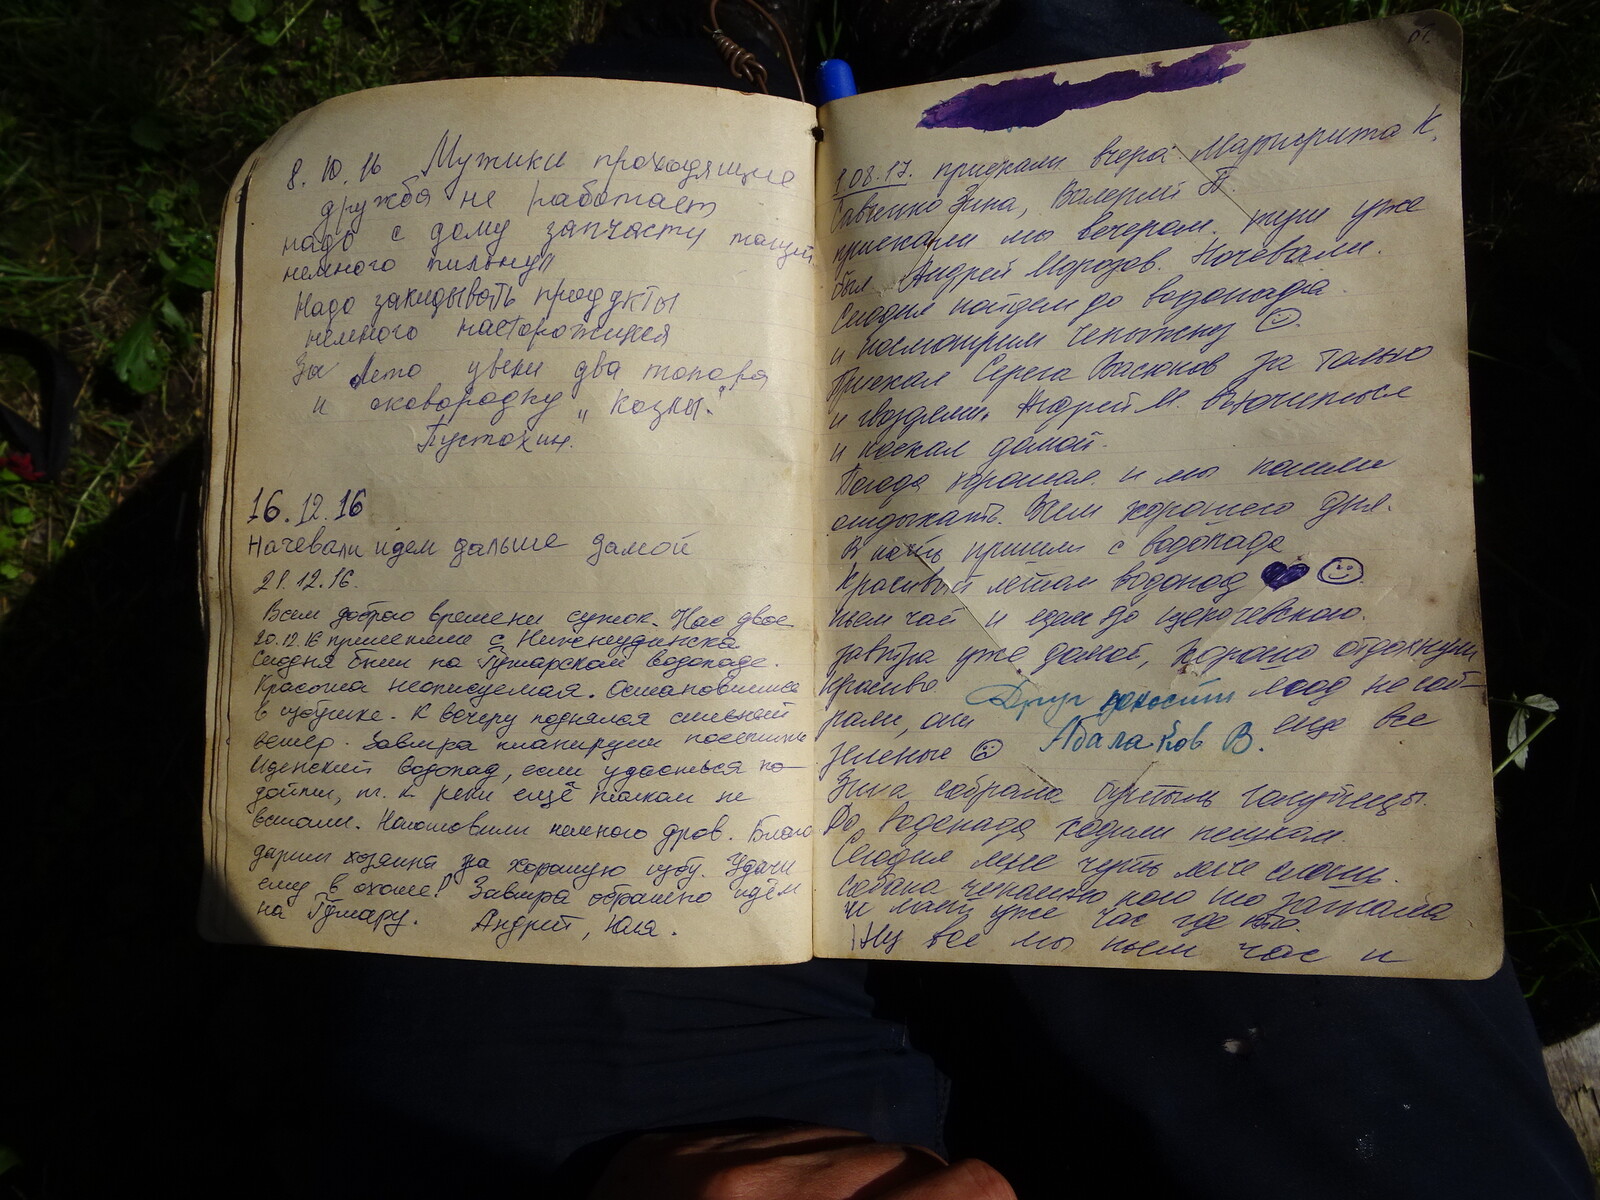 8.10.16 Мужики проходящие
дружба не работает
надо с дому запчасту тащить
немного пильнул
Надо закидывать продукты
немного насторожился
За Лето увели два топора
и сковородку „Козлы."
Пустохин.
16.12.16
Начевали идем дальше дамой
21.12.16.
Всем доброго времени суток. Нас двое
20.12.16 прилетели с Нижнеудинска
Сегодня были на водопаде.
Красота неописуемая. Остановились
в избушке. К вечеру поднялся сильный
ветер. Завтра планируем посетить
водопад, если удасться по-
дойти, т.к. реки ещё толком не
встали. Наготовили немного дров. Благо
дарим хозяина за хорошую избу. Удачи
ему в охоте! Завтра обратно идём
на Андрей, Юля.
01.
1.08.17. приехали вчера Маргарита К.
Савченко Зина, Валерий П.
приехали мы вечером. тут уже
был Андрей Морозов. Ночевали.
Сегодня пойдем до водопада
и посмотрим
Приехал Серега Васюков за
и гвоздями. Андрей М.
и поехал домой.
Погода хорошая и мы пошли
отдыхать. Всем хорошего дня.
В ночь пришли с водопада
Красивый летом водопад
пьем чай и едем до
завтра уже домой, хорошо отдохнули
красиво ягод не соб-
рали, они еще все
зеленые
Друг
Абалаков В.
Зина собрала бутыль голубицы.
До водопада ходили пешком.
Сегодня чуть
Собака кого то
уже час где то.
Ну все мы пьем час и